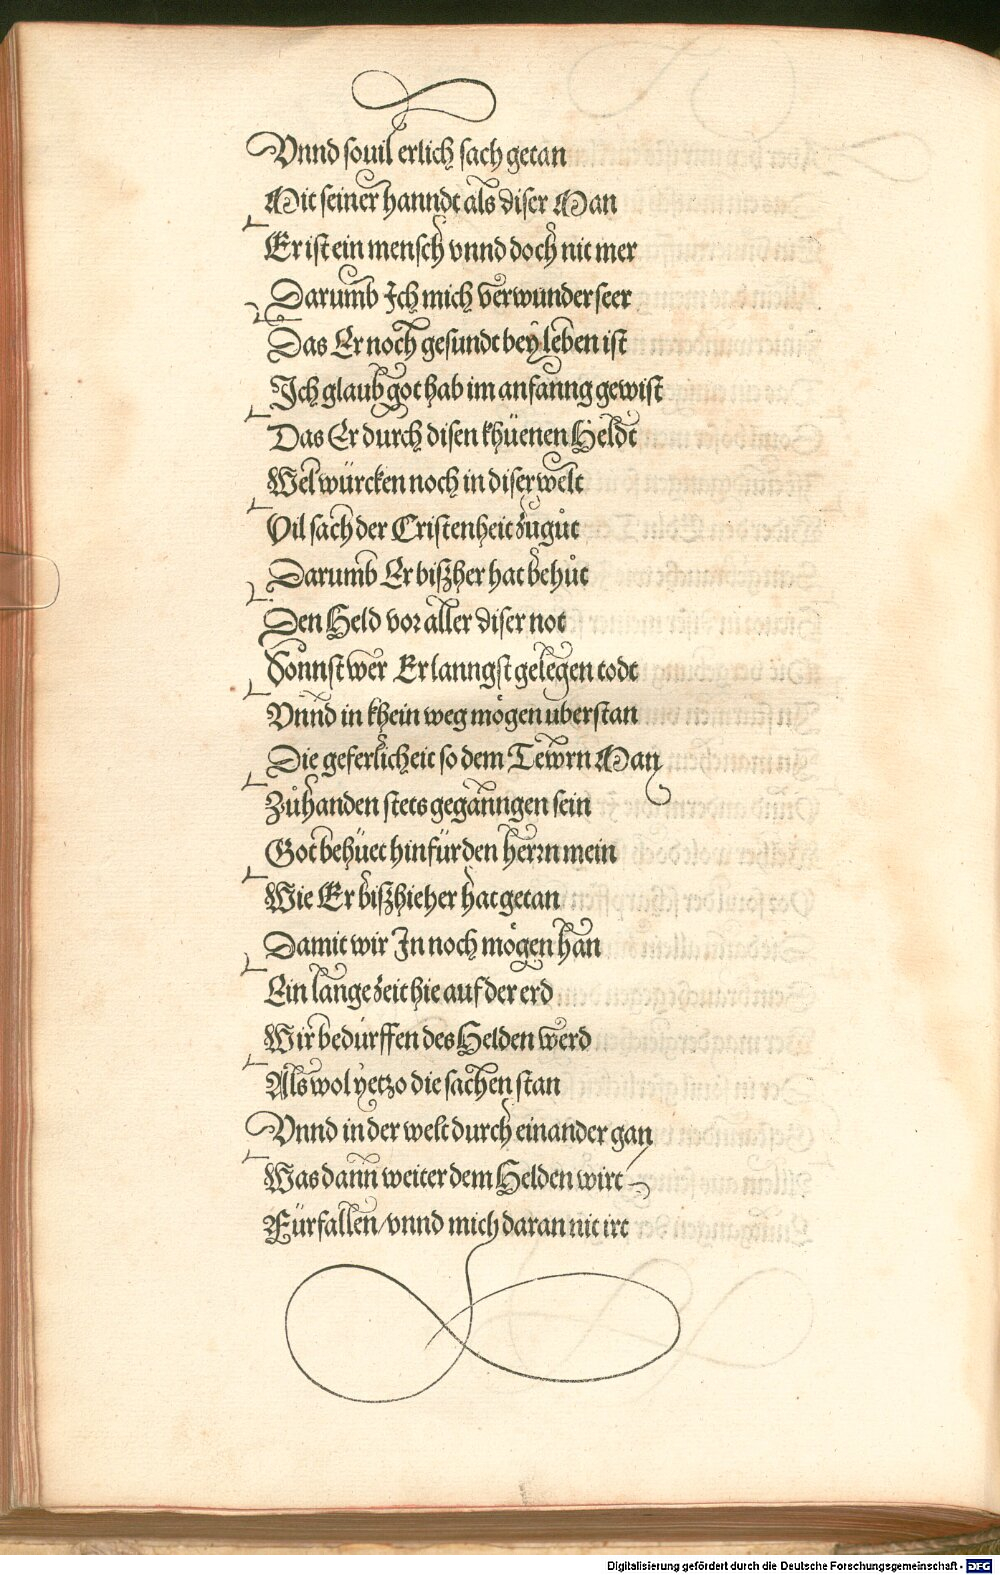 Vnnd souil erlich sach getan
Mit seiner hanndt als diser Man
Er ist ein mensch vnnd doch nit mer
Darumb Ich mich verwunder seer
Das Er noch gesundt bey leben ist
Ich glaub got hab im anfanng gewist
Das Er durch disen khüenen Heldt
Wel würcken noch in diser welt
Vil sach der Cristenheit zugůt
Darumb Er biszher hat behůt
Den Held vor aller diser not
Sonnst wer Er lanngst gelegen todt
Vnnd in khein weg mögen uberstan
Die geferlicheit so dem Tewrn Man
Zůhanden stets geganngen sein
Got behüet hinfür den herrn mein
Wie Er biszhieher hat getan
Damit wir In noch mögen han
Ein lange zeit hie auf der erd
Wir bedürffen des Helden werd
Als wol yetzo die sachen stan
Vnnd in der welt durch einander gan
Was dann weiter dem Helden wirt
Fürfallen/vnnd mich daran nit irt
Digitalisierung gefördert durch die Deutsche Forschungsgemeinschaft - DFG